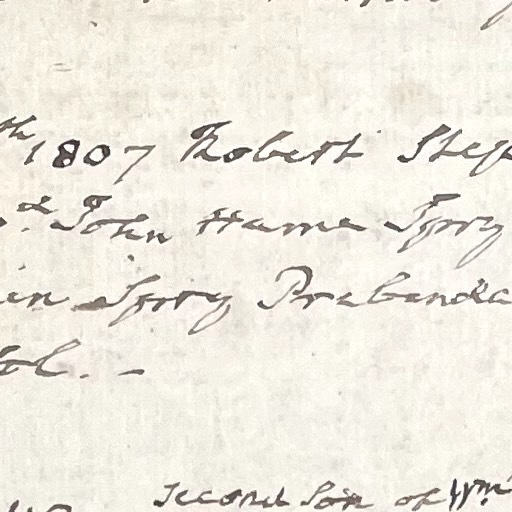 th 1807 Robert Step
d. John Hume Spry
in Spry Prebenda
tol. -
Second Son of Wm